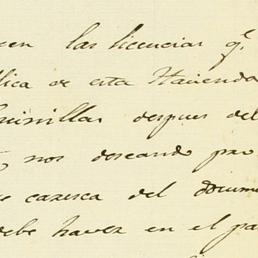 een las licencias q.
lica de esta Hacienda
uinillas despues del
nos deseando pro
e caresca del docum
debe haver en el pa